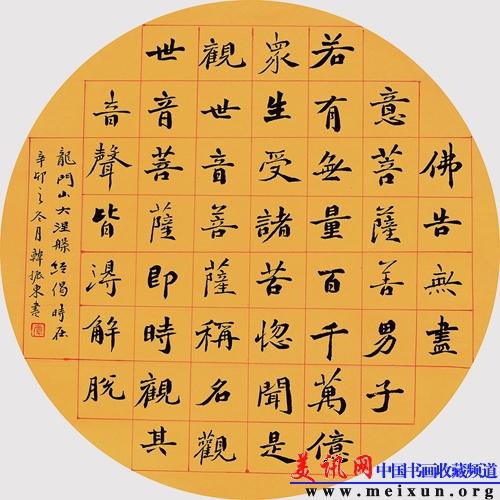 佛告無盡
意菩薩善男子
若有無量百千萬億
眾生受諸苦惚聞是
觀世音菩薩稱名觀
世音菩薩即時觀其
音聲皆得解脫
龍門山大涅槃經偈時在
辛卯之冬月韓振東書
美讯网 中国书画收藏频道
www.meixun.org